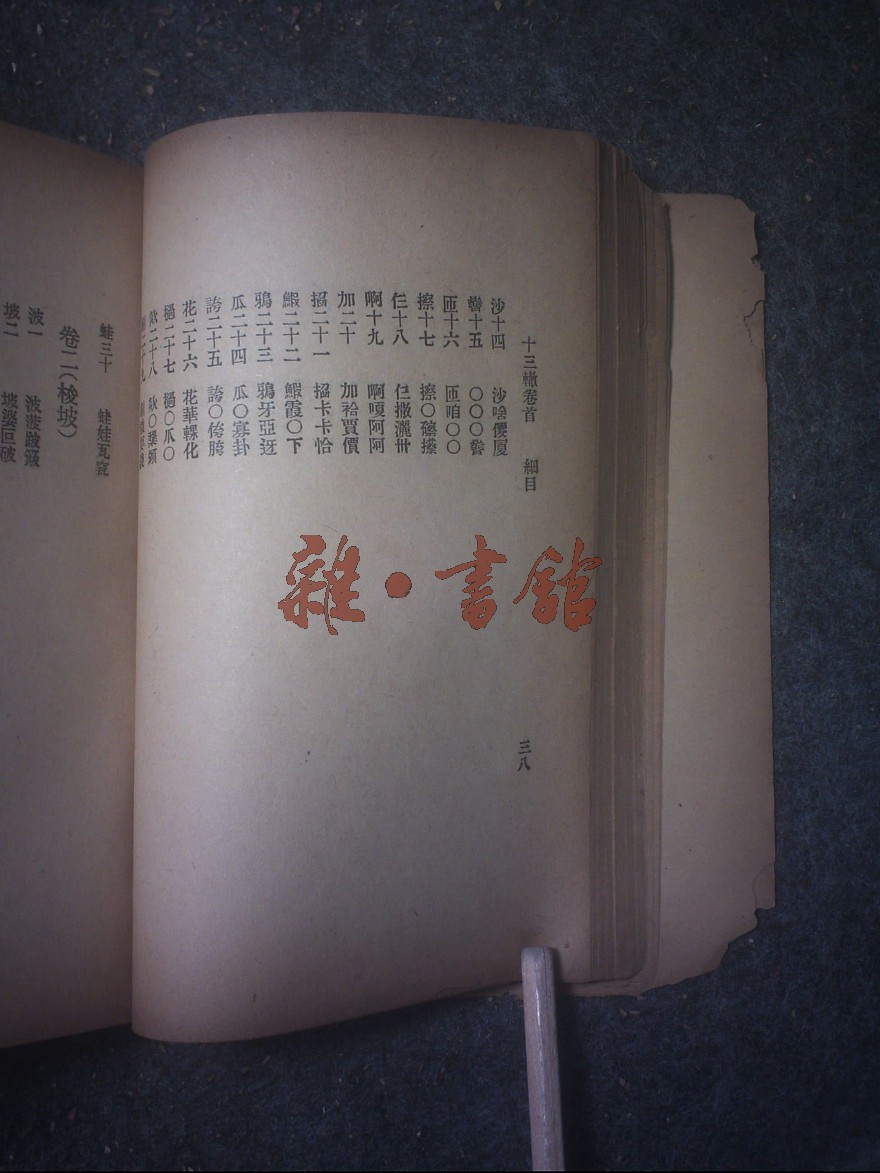 十三轍卷首 細目
三八
沙十四 沙啥儍厦
十五 〇〇〇
匝十六 匝咱〇〇
擦十七 擦〇
仨十八 仨撒灑卅
啊十九 啊嗄阿阿
加二十 加袷賈價
掐二十一 掐卡卡恰
鰕二十二 鰕霞〇下
鴉二十三 鴉牙亞迓
瓜二十四 瓜〇寡卦
誇二十五 誇〇侉胯
花二十六 花華踝化
撾二十七 撾〇爪〇
二十八
蛙三十 蛙娃瓦
卷二(梭坡)
波一 波
坡二 坡婆叵破
雜·書館